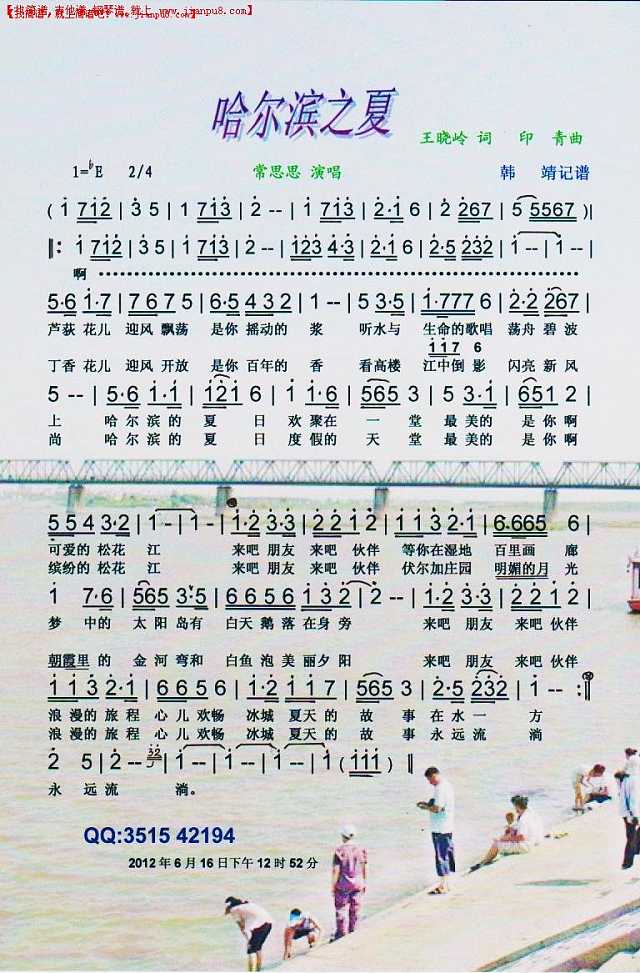 【找简谱，吉他谱，钢琴谱，就上 www.jianpu8.com】
【找简谱，就上简谱吧：www.jianpu8.com】
哈尔滨之夏
王晓岭 词 印 青曲
1=♭E 2/4 常思思 演唱 韩 靖记谱
( 1 712 | 3 5 | 1 713 | 2 -- | 1 713 | 2·1 6 | 2 267 | 5 5567 )|
‖: 1 712 | 3 5 | 1 713 | 2 -- | 123 4·3 | 2·1 6 | 2·5 232 | 1 -- | 1 -- |
啊
5·6 1·7 | 7 6 7 5 | 6·5 4 3 2 | 1 -- | 5 3·5 | 1·777 6 | 2·2 267 |
芦荻 花儿 迎风 飘荡 是你 摇动的 浆 听水与 生命的歌唱 荡舟 碧波
1·17 6
丁香 花儿 迎风 开放 是你 百年的 香 看高楼 江中倒 影 闪亮 新风
5 -- | 5·6 1·1 | 1 2 1 6 | 1 1·6 | 565 3 | 5 3·1 | 651 2 |
上 哈尔 滨的 夏 日 欢聚在 一 堂 最美的 是你啊
尚 哈尔 滨的 夏 日 度假的 天 堂 最美的 是你啊
5 5 4 3·2 | 1 -- | 1 -- | 1·2 3·3 | 2 2 1 2 | 1 1 3 2·1 | 6·665 6 |
可爱的 松花 江 来吧 朋友 来吧 伙伴 等你在湿地 百里画 廊
缤纷的 松花 江 来吧 朋友 来吧 伙伴 伏尔加庄园 明媚的月 光
1 7·6 | 565 3·5 | 6 6 5 6 | 1 3 2 | 2 -- | 1·2 3·3 | 2 2 1 2 |
梦 中的 太 阳岛有 白天 鹅落在身 旁 来吧 朋友 来吧伙伴
朝霞里的 金 河弯和 白鱼 泡美丽夕阳 来吧 朋友 来吧伙伴
1 1 3 2·1 | 6 6 5 6 | 1·2 1 1 7 | 565 3 | 2·5 232 | 1 -- :‖
浪漫的 旅程 心儿 欢畅 冰城 夏天的 故 事 在 水一 方
浪漫的 旅程 心儿 欢畅 冰城 夏天的 故 事 永远流 淌
2 5 | 2 -- | 32 1 -- | 1 -- | 1 -- | 1 ( 111 ) ‖
永 远 流 淌。
QQ:3515 42194
2012 年 6 月 16 日下午 12 时 52 分